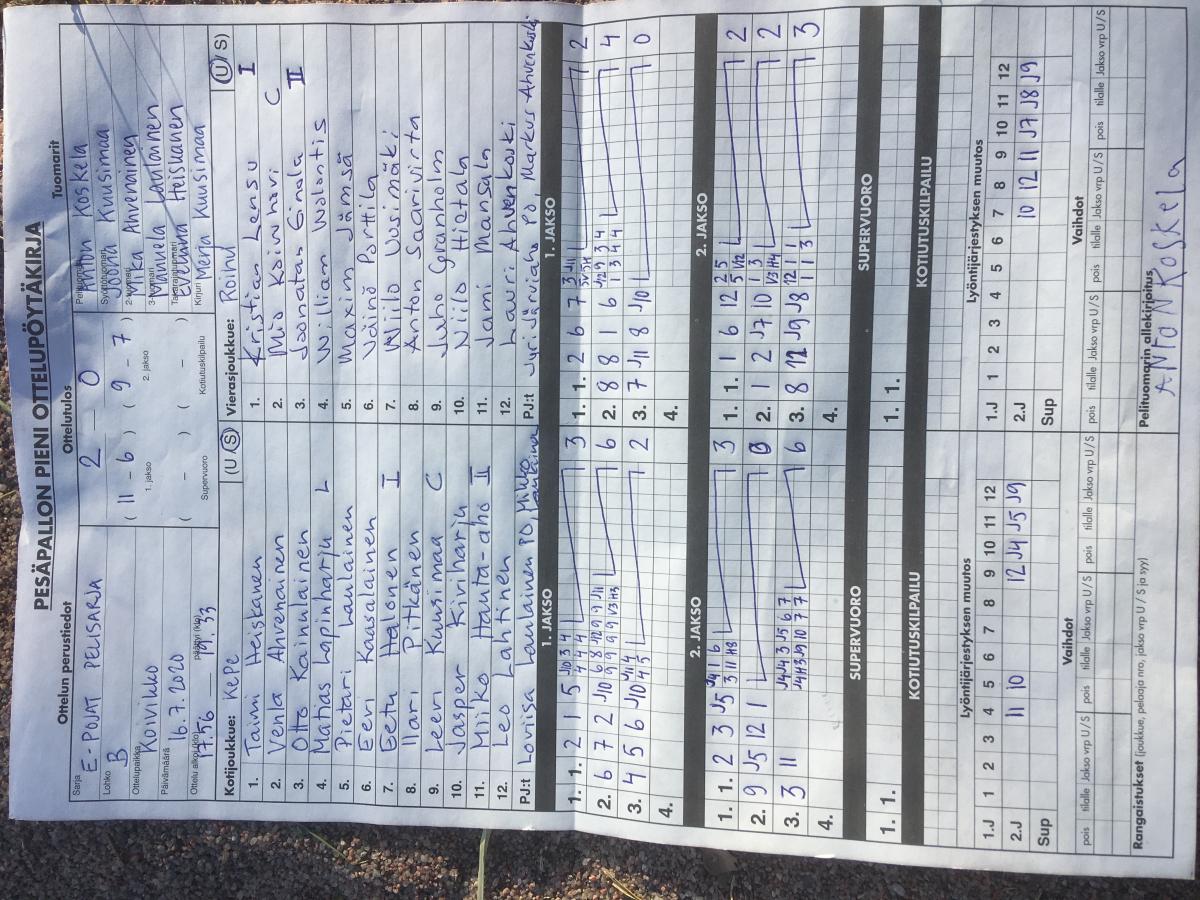 PESÄPALLON PIENI OTTELUPÖYTÄKIRJA
Ottelun perustiedot
Ottelutulos
Tuomarit
Sarja
E-POJAT PELISARJA
Lohko
B
Ottelupaikka
Koivikko
Päivämäärä
16.7.2020
Ottelu alkoi (klo)
päättyi (klo)
17.56 — 19.33
2 — 0
( 11 - 6 ) ( 9 - 7 )
1. jakso
2. jakso
( - ) ( - )
Supervuoro
Kotiutuskilpailu
Pelituomari
Anton Koskela
Syöttötuomari
Joona Kuusimaa
2-tuomari
Ahvenainen
3-tuomari
Laulainen
Takarajatuomari
Eveliina Heiskanen
Kirjuri
Merja Kuusimaa
Kotijoukkue: KePe (U/S)
1. Taimi Heiskanen
2. Venla Ahvenainen
3. Otto Kainulainen
4. Matias Lapinharju L
5. Pietari Laulainen
6. Eeri Kaasalainen
7. Eetu Halonen I
8. Ilari Pitkänen
9. Leevi Kuusimaa C
10. Jasper Kiviharju
11. Miiko Hauta-aho II
12. Leo Lahtinen
PJ:t Loviisa Laulainen PO, Mikko Laulainen
Vierasjoukkue: Roihu (U/S)
1. Kristian Lensu I
2. Mio Koivuneri C
3. Joonatan Einala II
4. William Wolontis
5. Maxim Jämsä
6. Väinö Porttila
7. Niilo Uusimäki
8. Anton Saarivirta
9. Juho Granholm
10. Niilo Hietala
11. Jami Mansala
12. Lauri Ahvenkoski
PJ:t Jyri Järviaho PO, Markus Ahvenkoski
1. JAKSO
1. 1. 2 1 5 J10 3 4 3
4 4 4
2. 6 7 2 J10 6 8 J12 9 9 J11 6
9 9 9 9 V3 H3
3. 4 5 6 J10 J11 4 2
4 5
4.
1. JAKSO
1. 1. 2 6 7 3 J11 2
5V5H 1
2. 8 8 1 6 J12 9 3 4 4
1 3 4 4
3. 7 J11 8 J10 0
4.
2. JAKSO
1. 1. 2 3 J5 J4 1 6 3
3 11 H3
2. 9 J5 12 1 0
3. 3 11 J4 J4 3 J5 6 7 6
J4 H3 J9 10 7 7
4.
2. JAKSO
1. 1. 1 6 12 2 5 2
5 V12
2. 1 2 J7 10 1 3 2
V3 H4
3. 8 12 J9 J8 12 1 1 3
1 1 3
4.
SUPERVUORO
1. 1.
SUPERVUORO
1. 1.
KOTIUTUSKILPAILU
KOTIUTUSKILPAILU
Lyöntijärjestyksen muutos
1.J 1 2 3 4 5 6 7 8 9 10 11 12
2.J 11 10 12 J4 J5 J9
Sup
Lyöntijärjestyksen muutos
1.J 1 2 3 4 5 6 7 8 9 10 11 12
2.J 10 12 11 J7 J8 J9
Sup
Vaihdot
pois tilalle Jakso vrp U/S pois tilalle Jakso vrp U/S pois tilalle Jakso vrp U/S
Vaihdot
pois tilalle Jakso vrp U/S pois tilalle Jakso vrp U/S pois tilalle Jakso vrp U/S
Rangaistukset (joukkue, pelaaja nro, jakso vrp U/S ja syy)
Pelituomarin allekirjoitus
ANTON KOSKELA